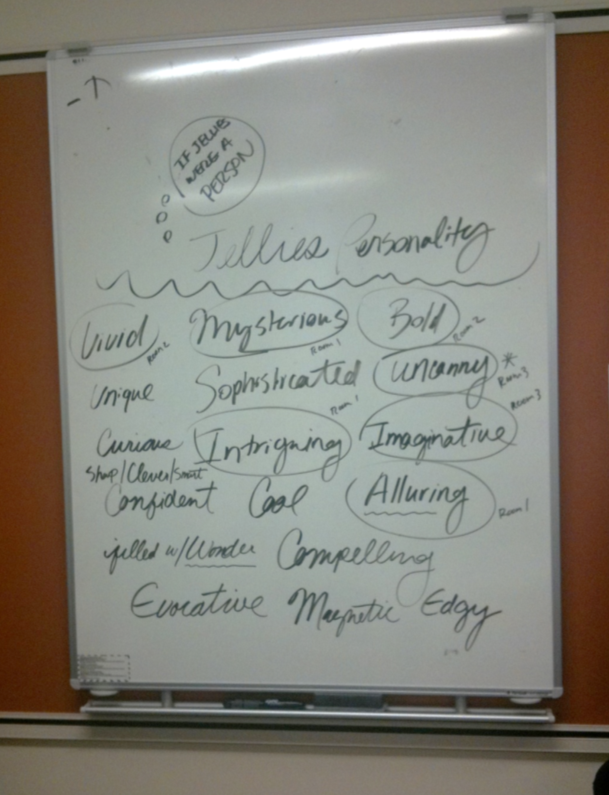 IF JELLIES
WERE A
PERSON
Jellies Personality
Vivid Mysterious Bold
Room 2 Room 1 Room 2
Unique Sophisticated Uncanny *
Room 1 Room 3
Room 3
Curious Intriguing Imaginative
Sharp/Clever/Smart
Confident Cool Alluring
Room 1
filled w/Wonder Compelling
Evocative Magnetic Edgy